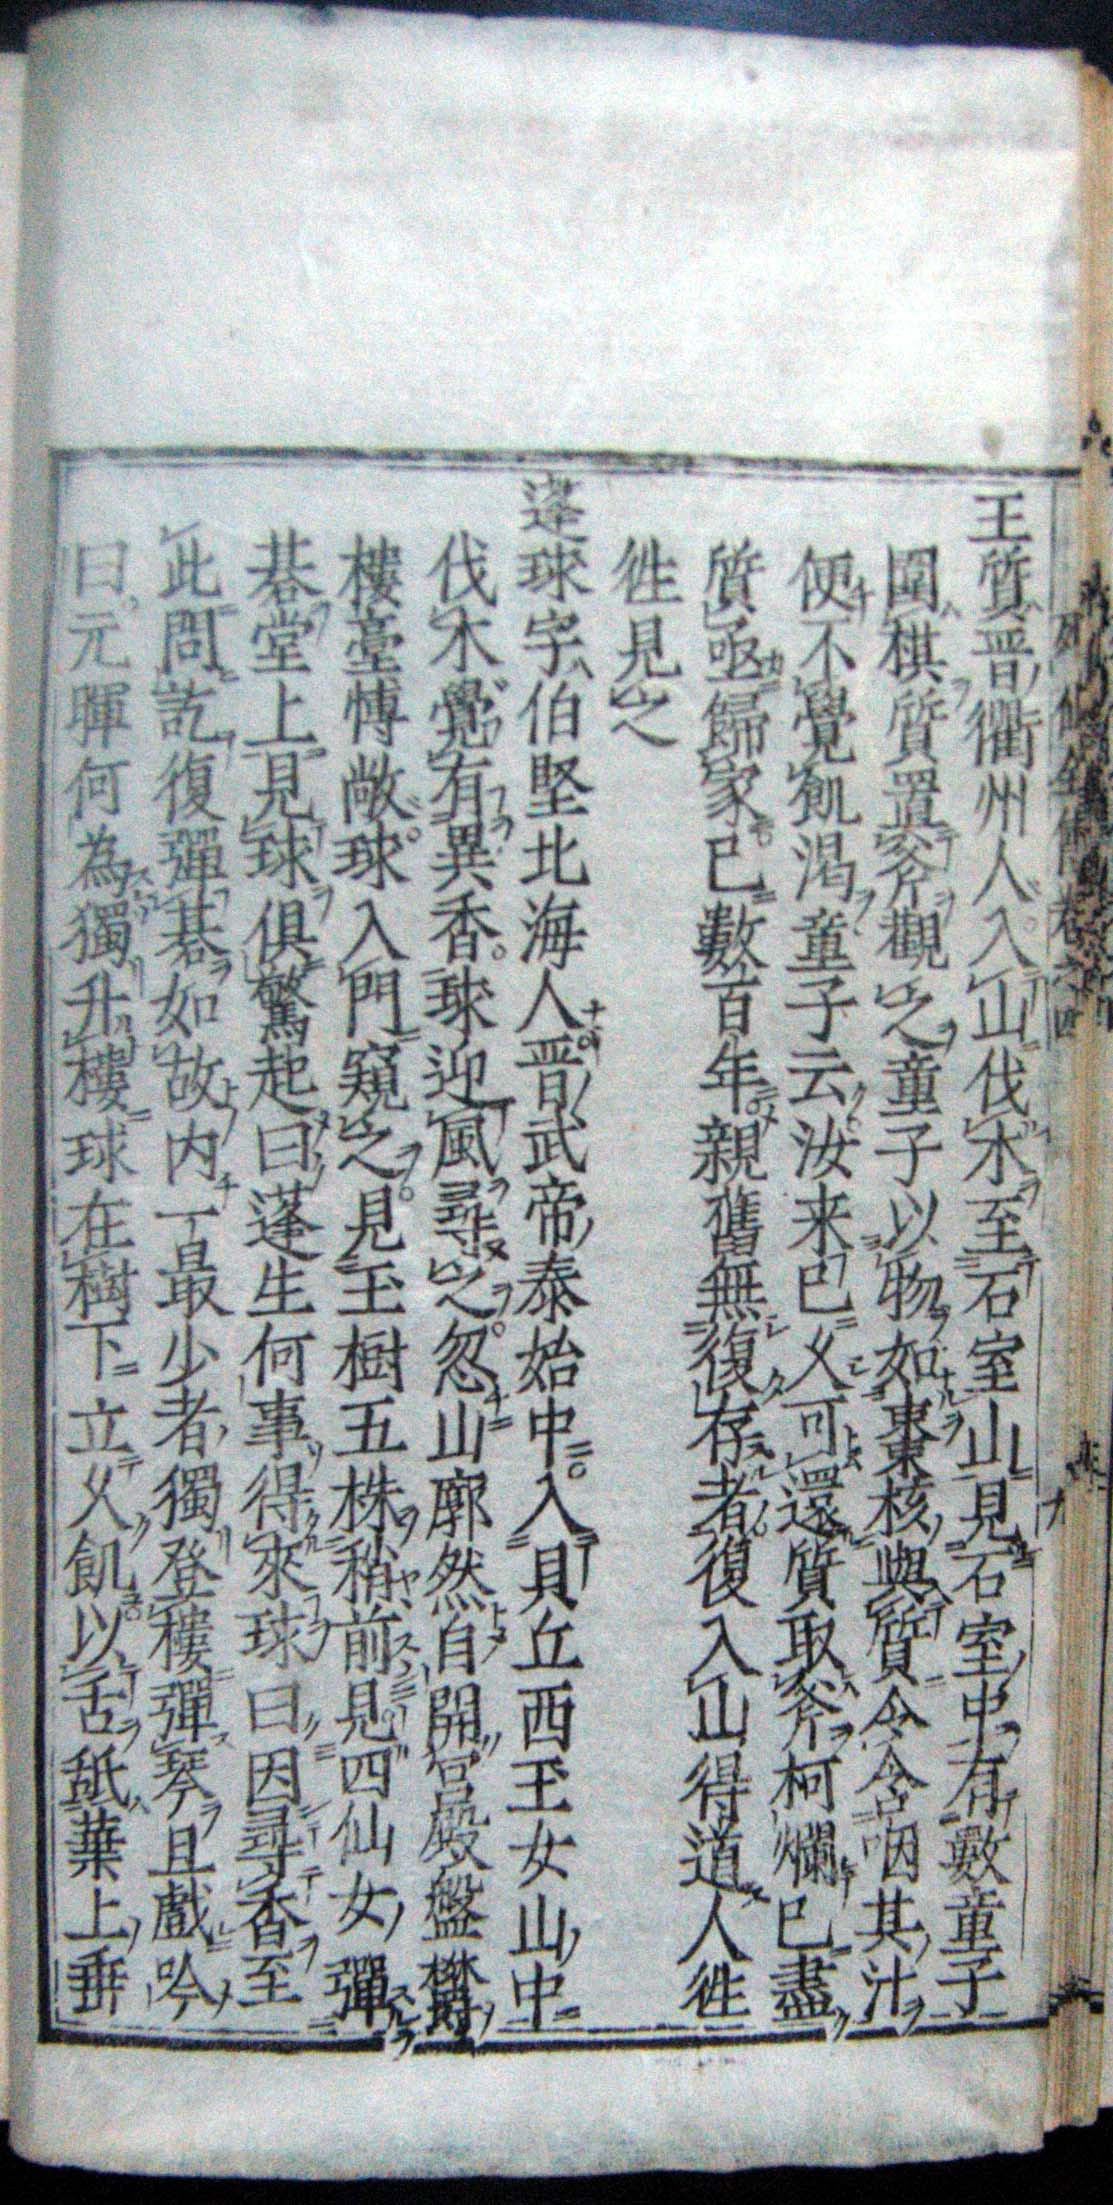 王質晋衢州人入山伐木至石室山見石室中有數童子
圍棋質置斧觀之童子以物如棗核與質令含咽其汁
便不覺飢渴童子云汝来已乆可還質取斧柯爛已盡
質亟歸家已數百年親舊無復存者復入山得道人徃
徃見之
逢球字伯堅北海人晋武帝泰始中入貝丘西玉女山中
伐木覺有異香球迎風尋之忽山廓然自開宮殿盤欝
樓臺愽敞球入門窺之見玉樹五株稍前見四仙女彈
碁堂上見球俱驚起曰蓬生何事得來球曰因尋香至
此問訖復彈碁如故内一最少者獨登樓彈琴且戲吟
曰元暉何為獨升樓球在樹下立乆飢以舌舐葉上垂